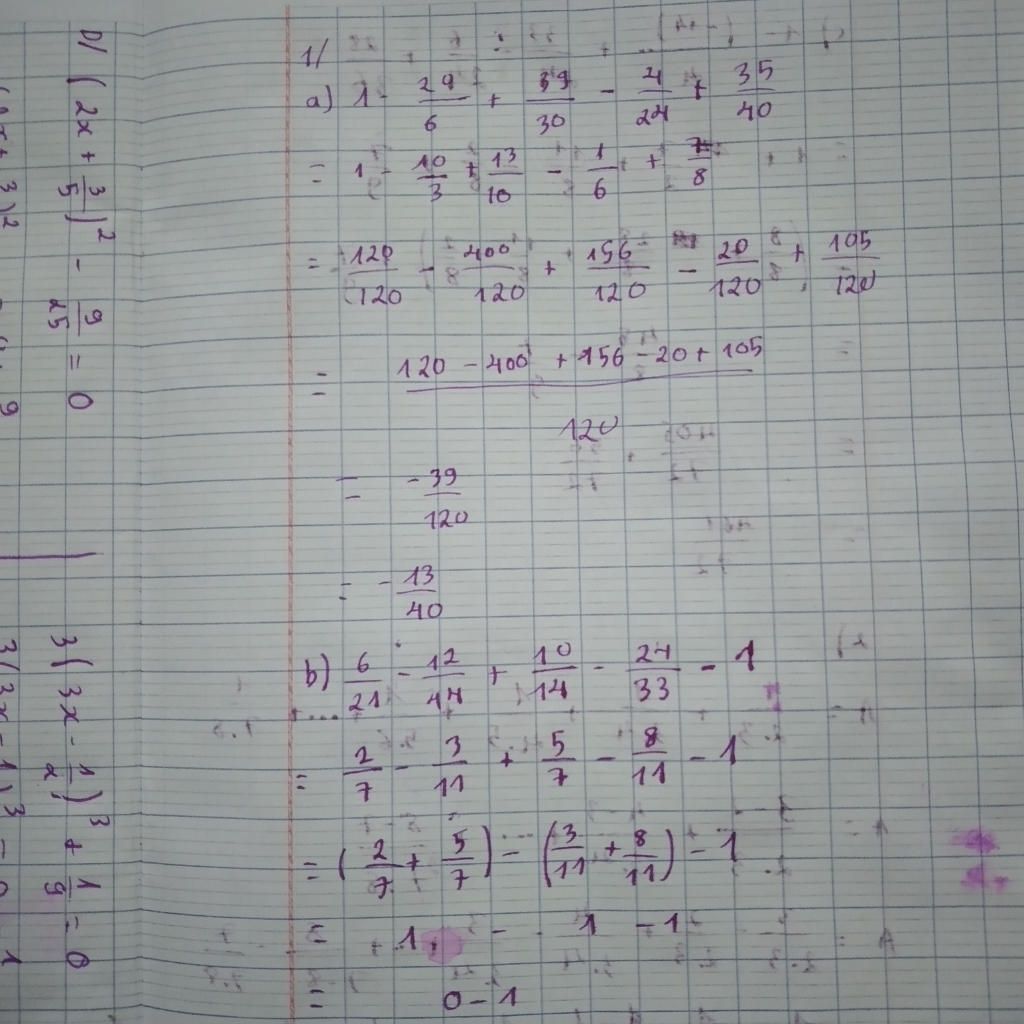 1/
a) 1 - 29/6 + 39/30 - 4/24 + 35/40
= 1 - 10/3 + 13/10 - 1/6 + 7/8
= 120/120 - 400/120 + 156/120 - 20/120 + 105/120
= (120 - 400 + 156 - 20 + 105)/120
= -39/120
= -13/40
b) 6/21 - 12/44 + 10/14 - 24/33 - 1
= 2/7 - 3/11 + 5/7 - 8/11 - 1
= (2/7 + 5/7) - (3/11 + 8/11) - 1
= 1 - 1 - 1
= 0 - 1
D/ (2x + 3/5)² - 9/25 = 0
3(3x - 1/2)³ + 1/9 = 0